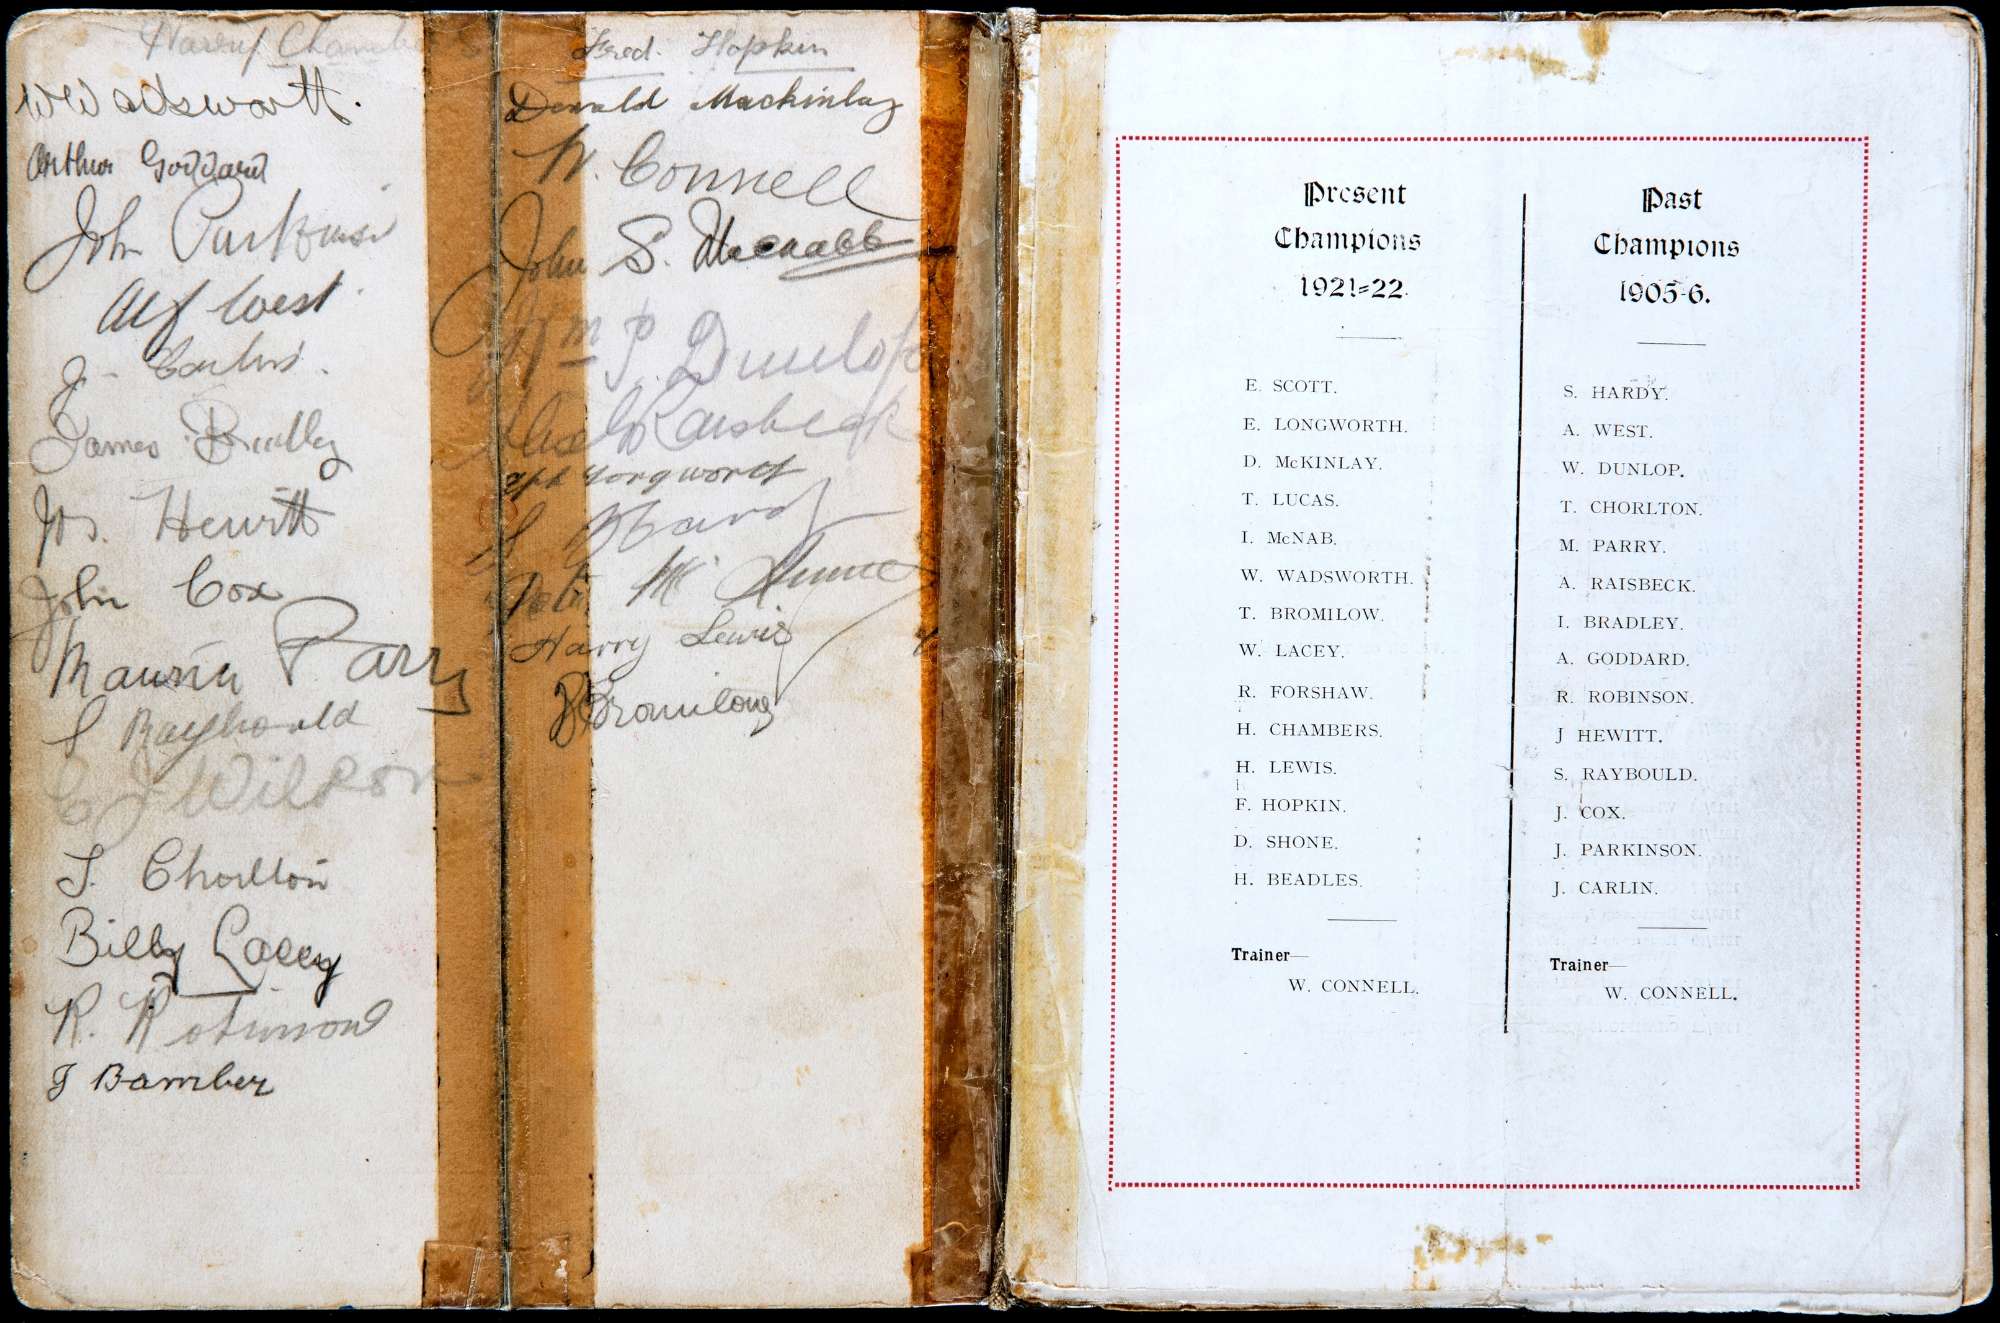 Harry Chambers
W Wadsworth.
Arthur Goddard
John Parkinson
Alf West.
J. Carlin.
James Bradley
Jos. Hewitt
John Cox
Maurice Parry
S Raybould
C J Wilson
T. Chorlton
Billy Lacey
R. Robinson
J Bamber
Fred. Hopkin
Donald Mackinlay
W. Connell
John S. Macnabb
Wm P. Dunlop
Alex Raisbeck
Eph Longworth
S Hardy
Harry Lewis
Bromilow
Present
Champions
1921=22.
E. SCOTT.
E. LONGWORTH.
D. McKINLAY.
T. LUCAS.
I. McNAB.
W. WADSWORTH.
T. BROMILOW.
W. LACEY.
R. FORSHAW.
H. CHAMBERS.
H. LEWIS.
F. HOPKIN.
D. SHONE.
H. BEADLES.
Trainer—
W. CONNELL.
Past
Champions
1905-6.
S. HARDY.
A. WEST.
W. DUNLOP.
T. CHORLTON.
M. PARRY.
A. RAISBECK.
I. BRADLEY.
A. GODDARD.
R. ROBINSON.
J HEWITT.
S. RAYBOULD.
J. COX.
J. PARKINSON.
J. CARLIN.
Trainer—
W. CONNELL.